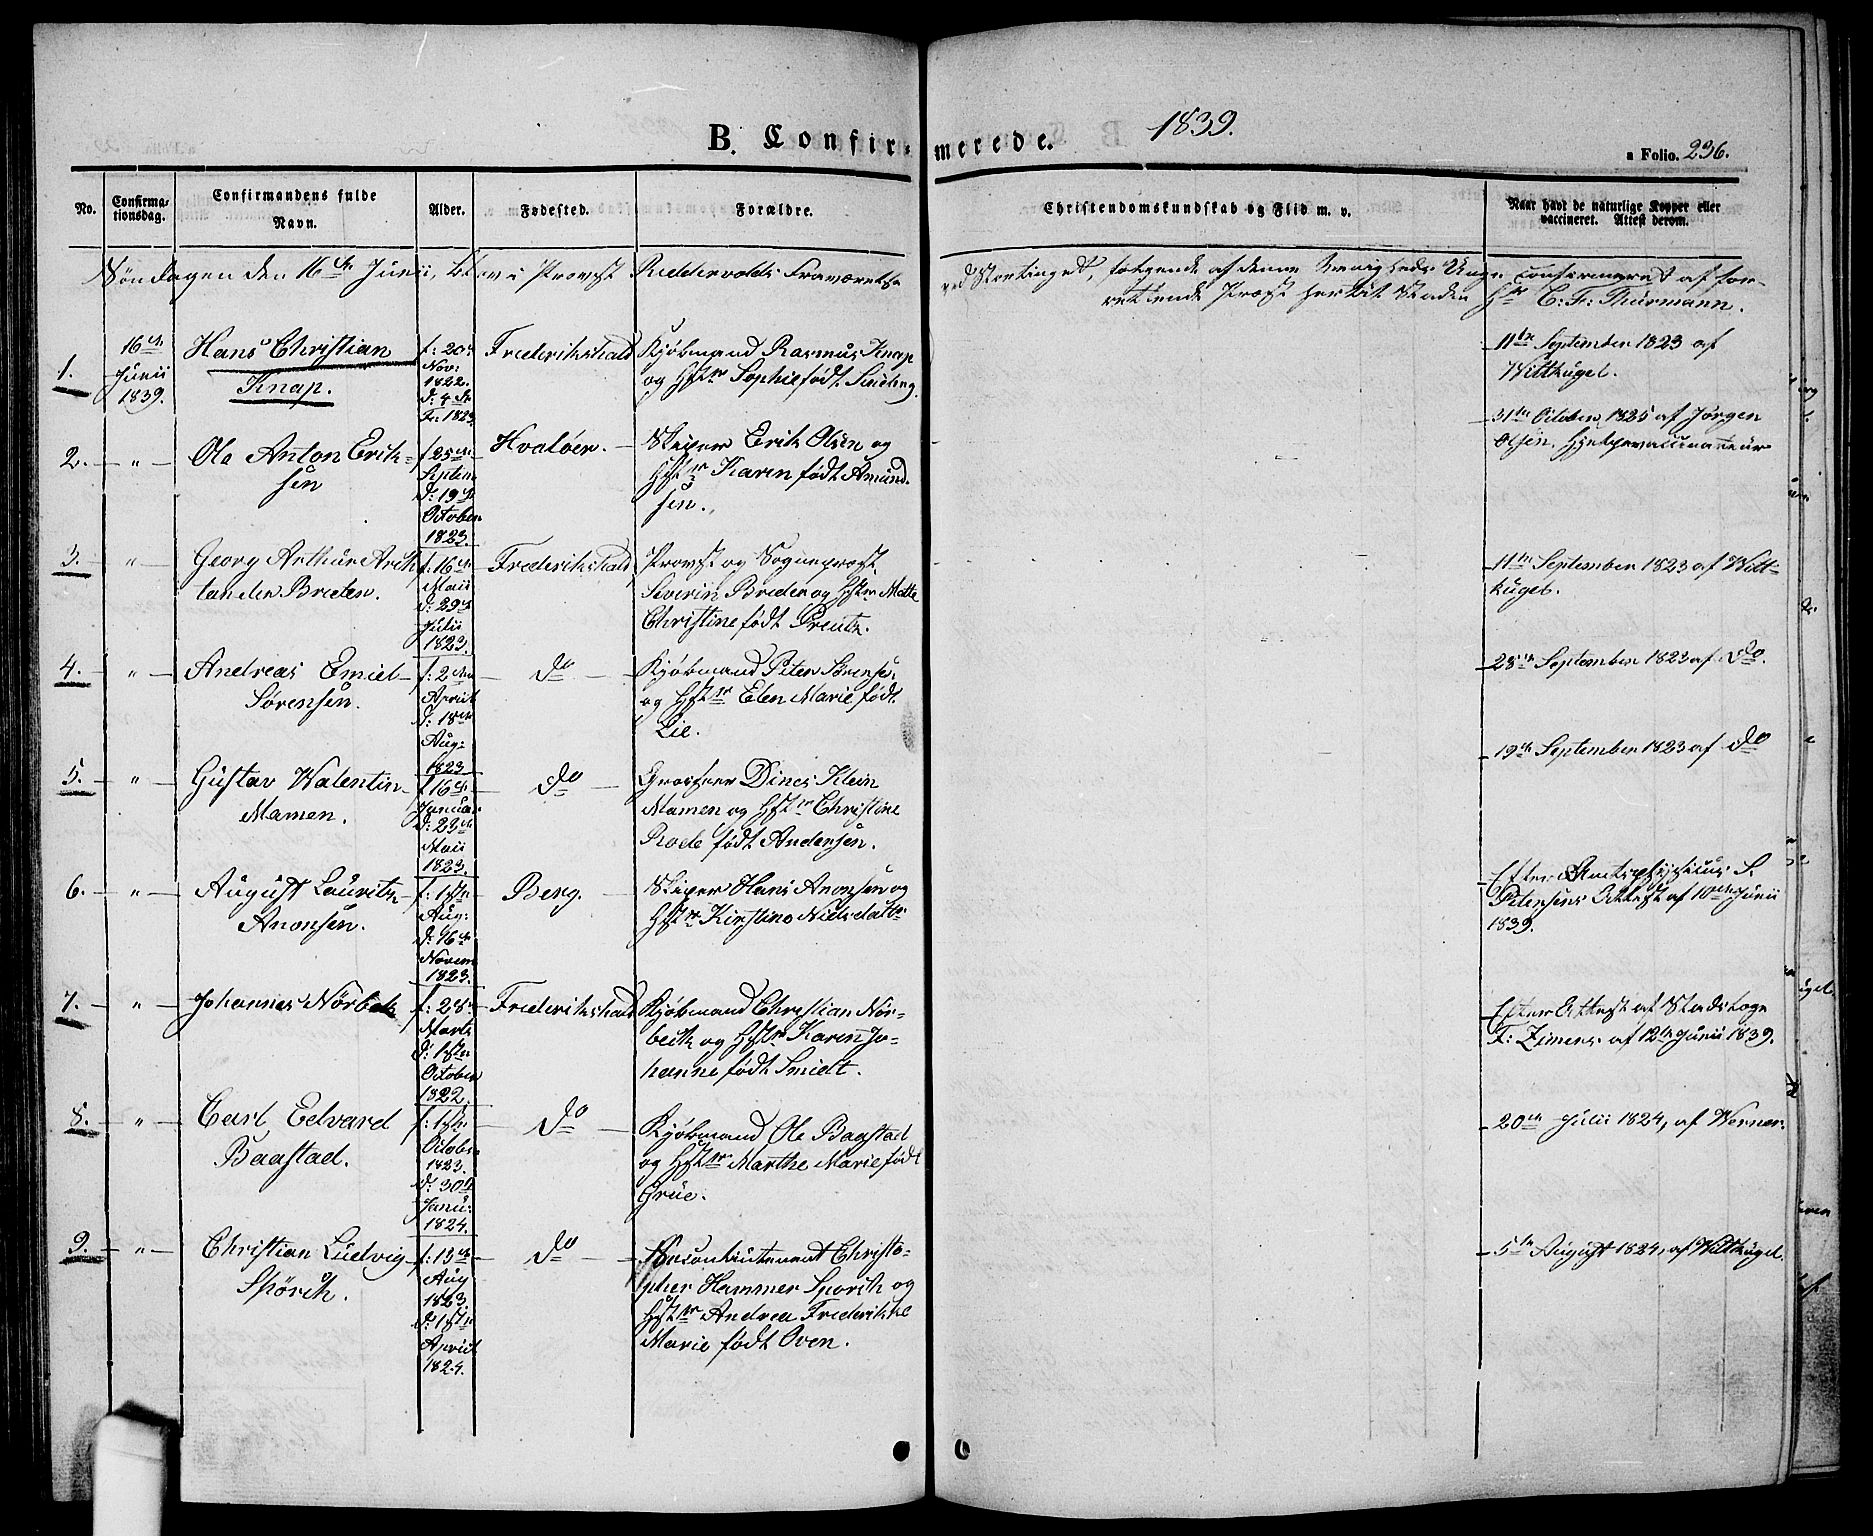 B. Confir-
merede.
1839.
a Folio. 236.
No.
Confirma-
tionsdag.
Confirmandens fulde
Navn.
Alder.
Fødested.
Forældre.
Christendomskundskab og Flid m. v.
Naar havt de naturlige Kopper eller
vaccineret. Attest derom.
Søndagen den 16de Junii, blev i Provst Riddervolds Fraværelse
ved Storthinget, følgende af denne Menigheds Unge confirmeret af for-
rettende Præst her til Staden Hr C: F: Thurmann.
1.
16de
Junii
1839.
Hans Christian
Knap.
f: 20de
Nov:
1822.
d: 4de
Fe: 1823
Frederikshald
Kjøbmand Rasmus Knap
og Hstr Sophie født Smeling.
11te September 1823 af
Witthugel.
2. — " —
Ole Anton Erik-
sen
f 25de
Septem
d: 19de
October
1823.
Hvaløer.
Skiper Erik Olsen og
Hstr Karen født Amund-
sen.
31te October 1825 af Jørgen
Olsen, Hjelpevaccinateur
3. "
Georg Arthur
Breder.
f: 16de
Maii
d: 29de
Julii
1823.
Frederikshald
Provst og Sognepræst
Severin Breder og Hstr Mette
Christine født Preutz.
11te September 1823 af Witt-
hugel.
4. — " —
Andreas Emiel
Sørensen.
f: 2den
April
d: 18de
Aug:
1823
do
Kjøbmand Peter Sørensen
og Hstr Elen Marie født
Lie.
28de September 1823 af do.
5. — " —
Gustav Walentin
Mamen.
f 16de
Januar
d: 23de
Maii
1823.
do
Grosserer Dines Klein
Mamen og Hstr Christine
født Andersen.
19de September 1823 af do
6. — " —
August Lauritz
Anonsen.
f: 1ste
Aug:
d: 16de
Novem
1823.
Berg.
Skiper Hans Anonsen og
Hstr Kirstine Nielsdatter
Efter Amtsphysicus S.
Petersens Attest af 10de Junii
1839.
7. — " —
Johannes Nørbek
f: 28de
Marts
d: 1ste
October
1822.
Frederikshald
Kjøbmand Christian Nør-
beck og Hstr Karen Jo-
hanne født Smidt.
Efter Attest af Stadslæge
F: Zimers af 12te Junii 1839.
8. — " —
Carl Edvard
Baastad.
f: 1ste
Octobr
1823.
d: 30de
Janu:
1824.
do
Kjøbmand Ole Baastad
og Hstr Marthe Marie født
Grüe.
20de Julii 1824, af Werner.
9. — " —
Christian Ludvig
Spørck.
f: 13de
Aug
1823
d: 1ste
April
1824.
do
Secondlieutenant Christo-
pher Hammer Sporck og
Hstr Andrea Frederikke
Marie født Oven.
5te August 1824, af Witthugel.